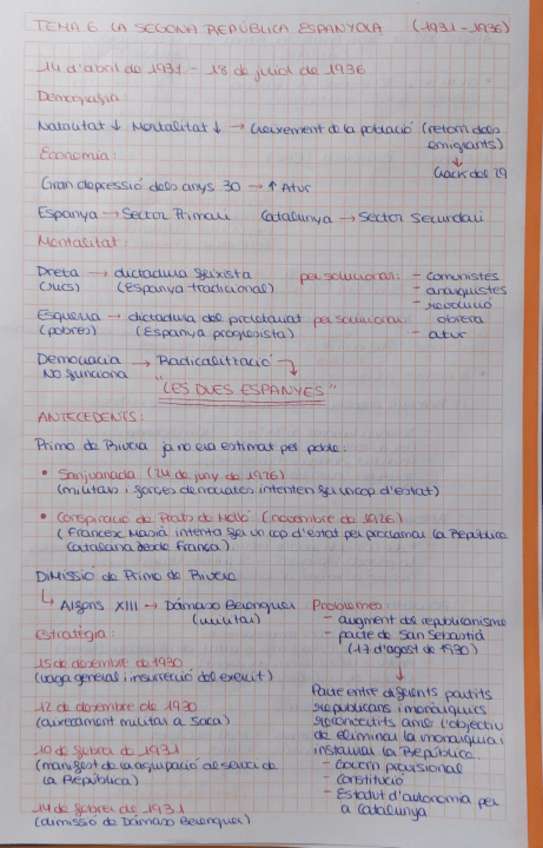 TEMA 6 LA SEGONA REPÚBLICA ESPANYOLA (1931 - 1936)
14 d'abril de 1931 - 18 de juliol de 1936
Demografia:
Natalitat ↓ Mortalitat ↓ → Creixement de la població (retorn dels
emigrants)
↓
Crack del 29
Economia:
Gran depressió dels anys 30 → ↑ Atur
Espanya → Sector Primari Catalunya → Sector Secundari
Mentalitat:
Dreta → dictadura feixista per solucionar: - comunistes
(rics) (Espanya tradicional) - anarquistes
- revolució
obrera
Esquerra → dictadura del proletariat per solucionar:
(pobres) (Espanya progresista) - atur
Democràcia → Radicalització
NO funciona
"LES DUES ESPANYES"
ANTECEDENTS:
Primo de Rivera ja no era estimat pel poble:
• Sanjuanada (24 de juny de 1926)
(militars i forces demòcrates intenten fer un cop d'estat)
• Conspiració de Prats de Molló (novembre de 1926)
(Francesc Macià intenta fer un cop d'estat per proclamar la República
Catalana desde França)
Dimissió de Primo de Rivera
↳ Alfons XIII → Dámaso Berenguer
(militar)
Estratègia:
15 de desembre de 1930
(vaga general i insurrecció del exèrcit)
12 de desembre de 1930
(aixecament militar a Jaca)
10 de febrer de 1931
(manifest de la agrupació al servei de
la República)
14 de febrer de 1931
(dimissió de Dámaso Berenguer)
Problemes:
- augment del republicanisme
- pacte de San Sebastià
(17 d'agost de 1930)
↓
Pacte entre diferents partits
republicans i monàrquics
reconvertits amb l'objectiu
de eliminar la monarquia i
instaurar la República.
- Govern provisional
- Constitució
- Estatut d'autonomia per
a Catalunya